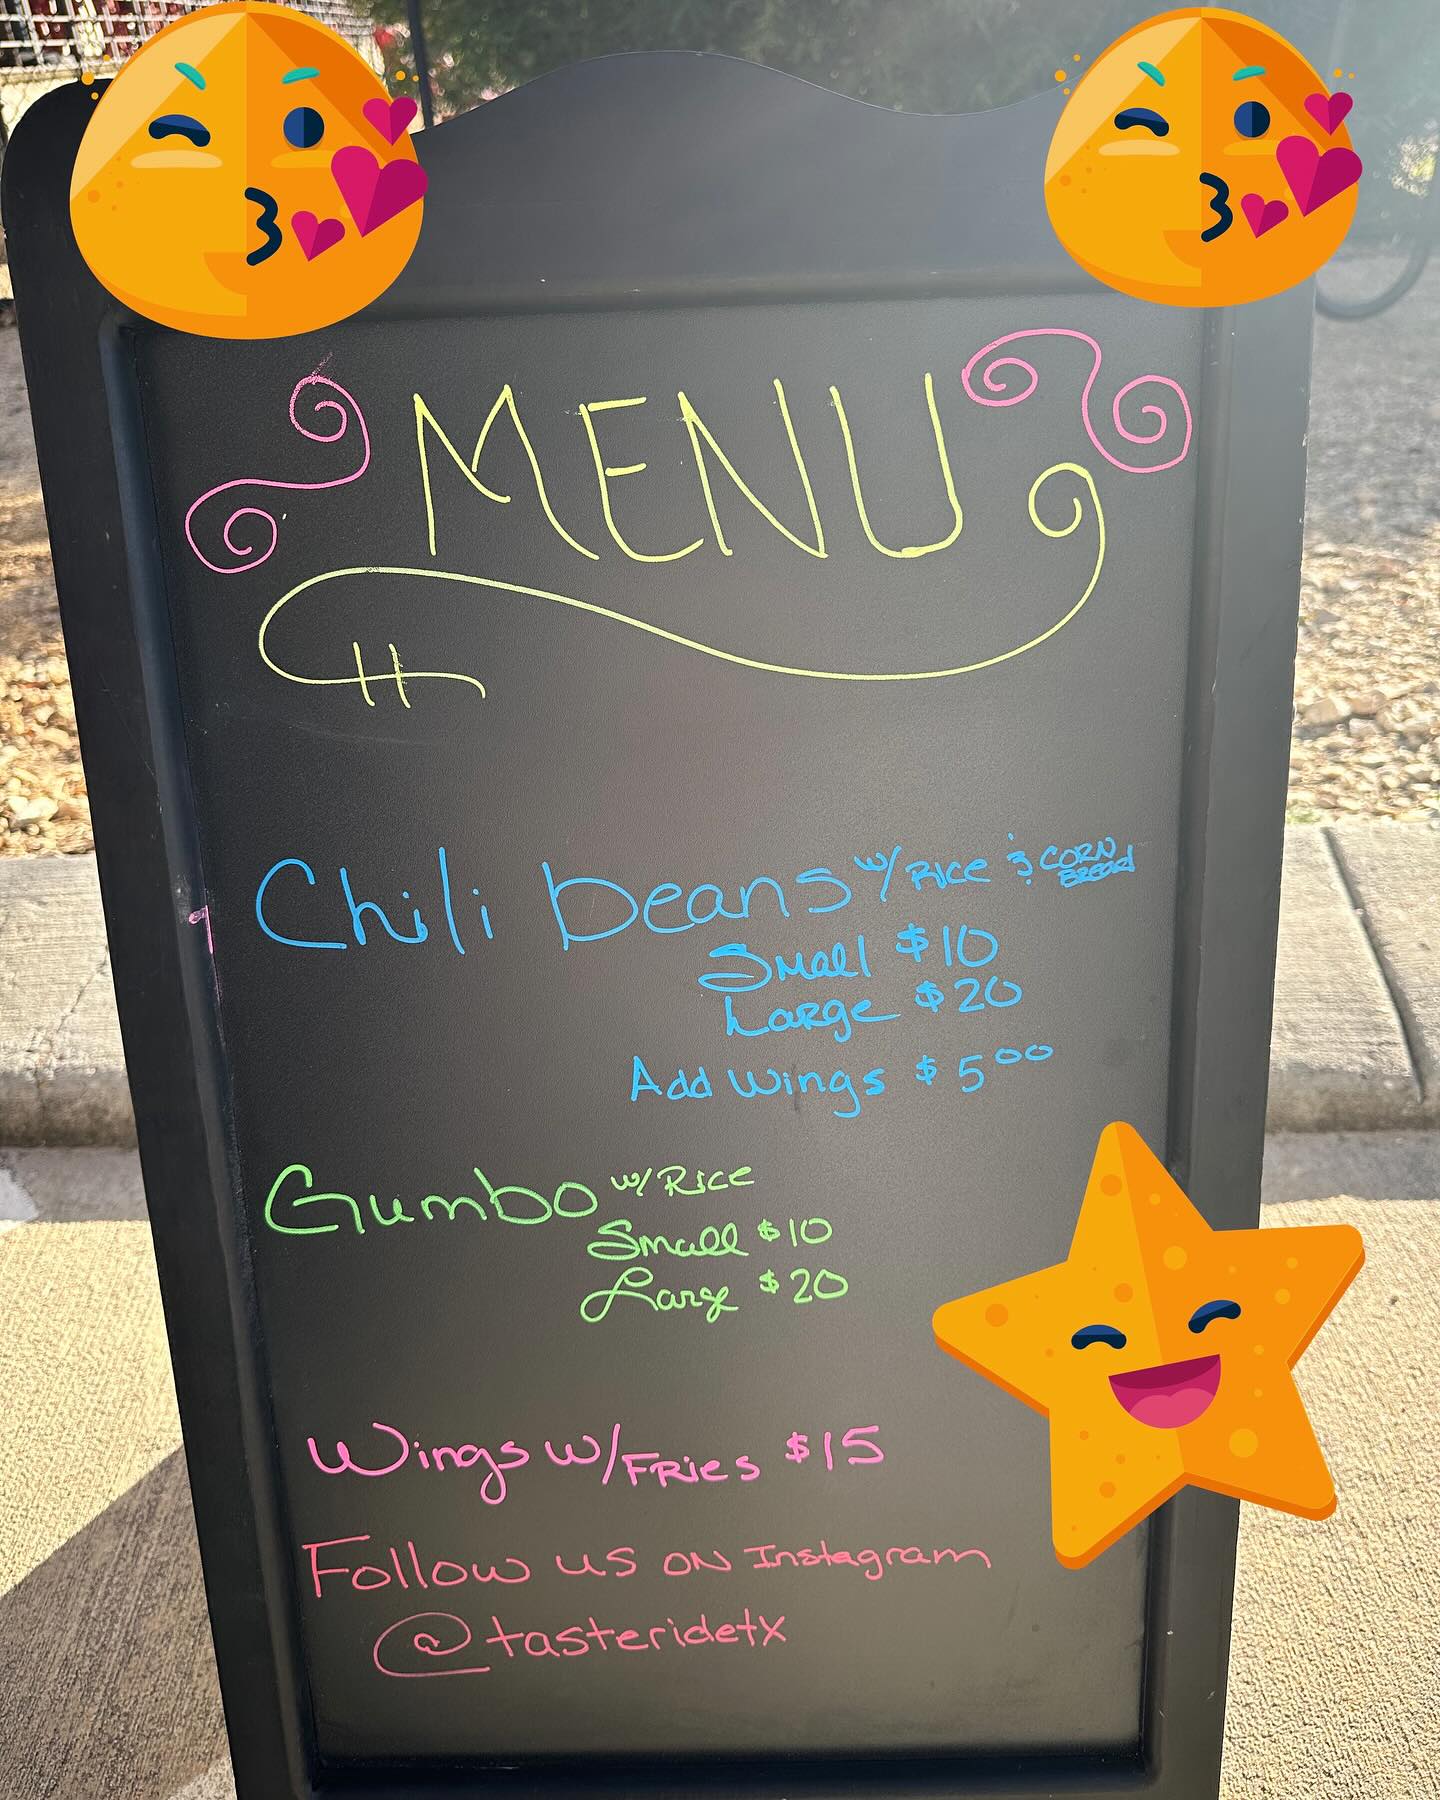 MENU
Chili beans w/ Rice & CORN BREAD
Small $10
Large $20
Add wings $5.00
Gumbo w/ Rice
Small $10
Large $20
Wings w/ FRies $15
Follow us on Instagram
@tasteridetx